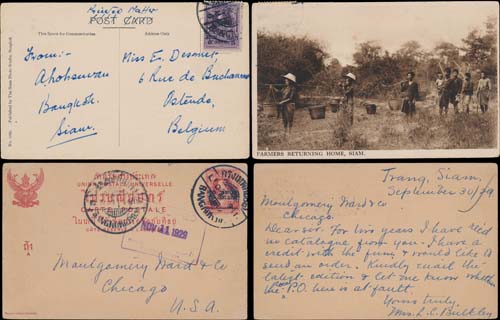 Printed Matter
POST CARD
This Space for Communication.
Address Only.
From:-
Bangkok.
Siam
Miss E. Desmet,
6 Rue de Bucharest
Ostende,
Belgium
FARMERS RETURNING HOME, SIAM.
UNION POSTALE UNIVERSELLE
BANGKOK
NOV 11 1929
Montgomery Ward & Co
Chicago
U.S.A.
Trang, Siam,
September 30/29
Montgomery Ward & Co
Chicago.
Dear sir. For two years I have had
no catalogue from you. I have a
credit with the firm & would like to
send an order. Kindly mail the
latest edition & let me know whether
P.O. here is at fault.
Yours truly,
Mrs. L. C. Bulkley